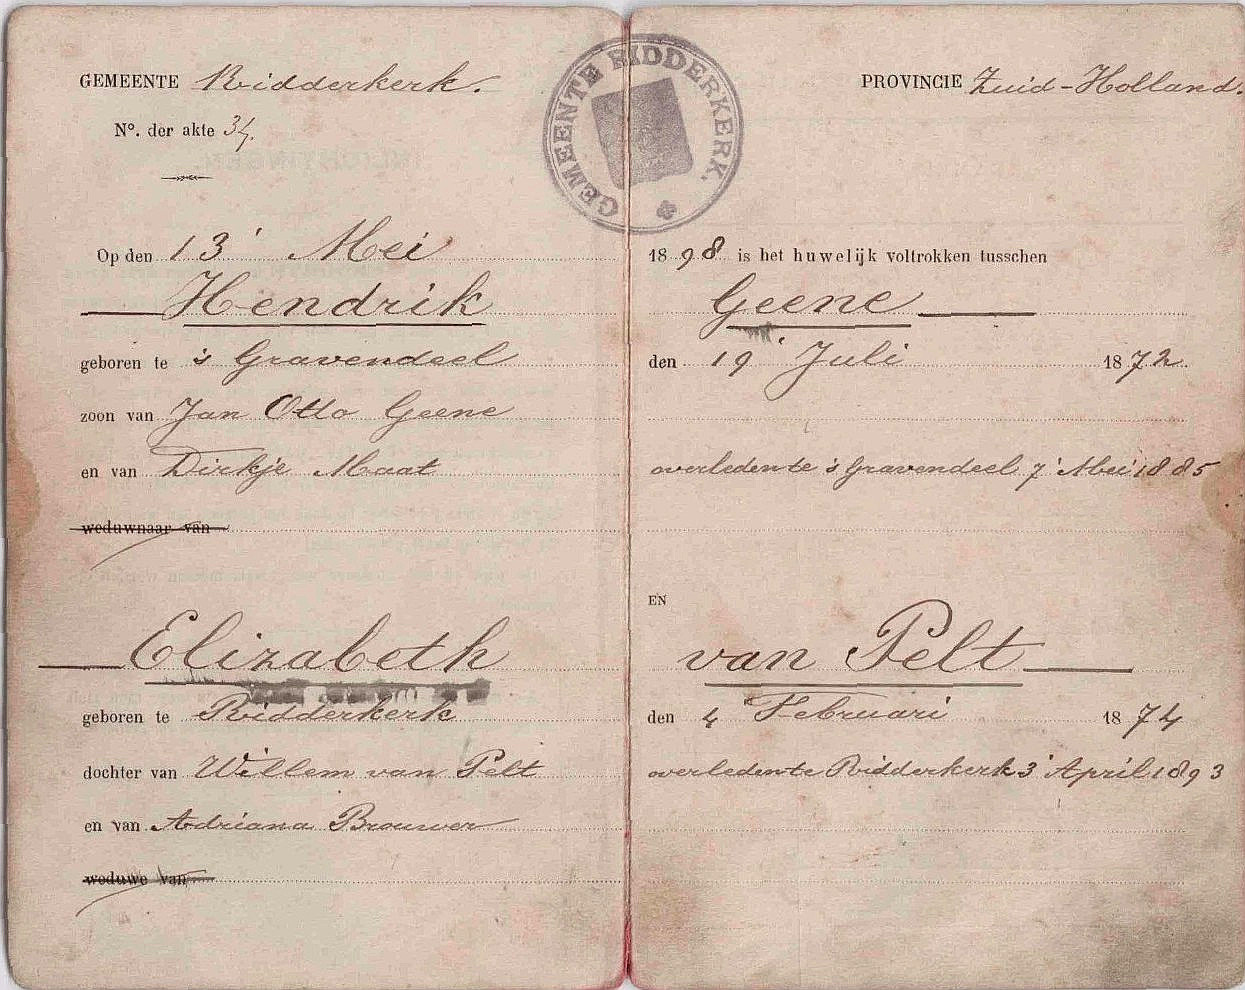 GEMEENTE Ridderkerk. PROVINCIE Zuid-Holland.
GEMEENTE RIDDERKERK.
Nº. der akte 34.
Op den 13 Mei 1898 is het huwelijk voltrokken tusschen
Hendrik Geene
geboren te 's Gravendeel den 19 Juli 1872
zoon van Jan Otto Geene
en van Dirkje Maat overleden te 's Gravendeel 7 Mei 1885
weduwnaar van
EN
Elizabeth van Pelt
geboren te Ridderkerk den 4 Februari 1874
dochter van Willem van Pelt overleden te Ridderkerk 3 April 1893
en van Adriana Brouwer
weduwe van